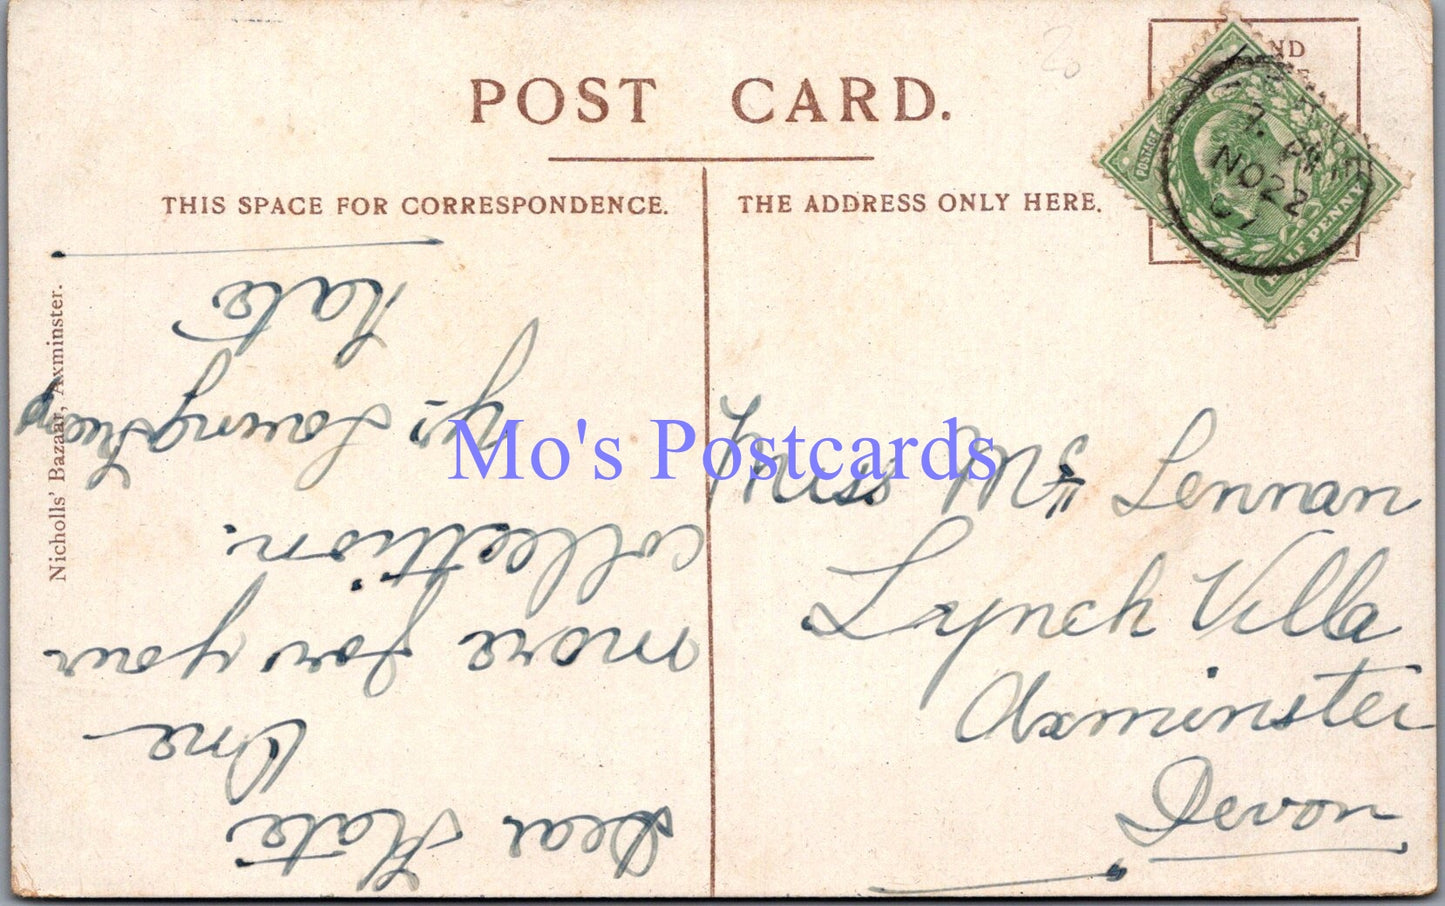 POST CARD.
THIS SPACE FOR CORRESPONDENCE.
THE ADDRESS ONLY HERE.
Nicholls' Bazaar, Axminster.
Dear Kate
One
more for your
collection.
Yrs Loving
Kate
Miss Mc Lennan
Lynch Villa
Axminster
Devon
POSTAGE
HALF PENNY
NO 22
07
Mo's Postcards